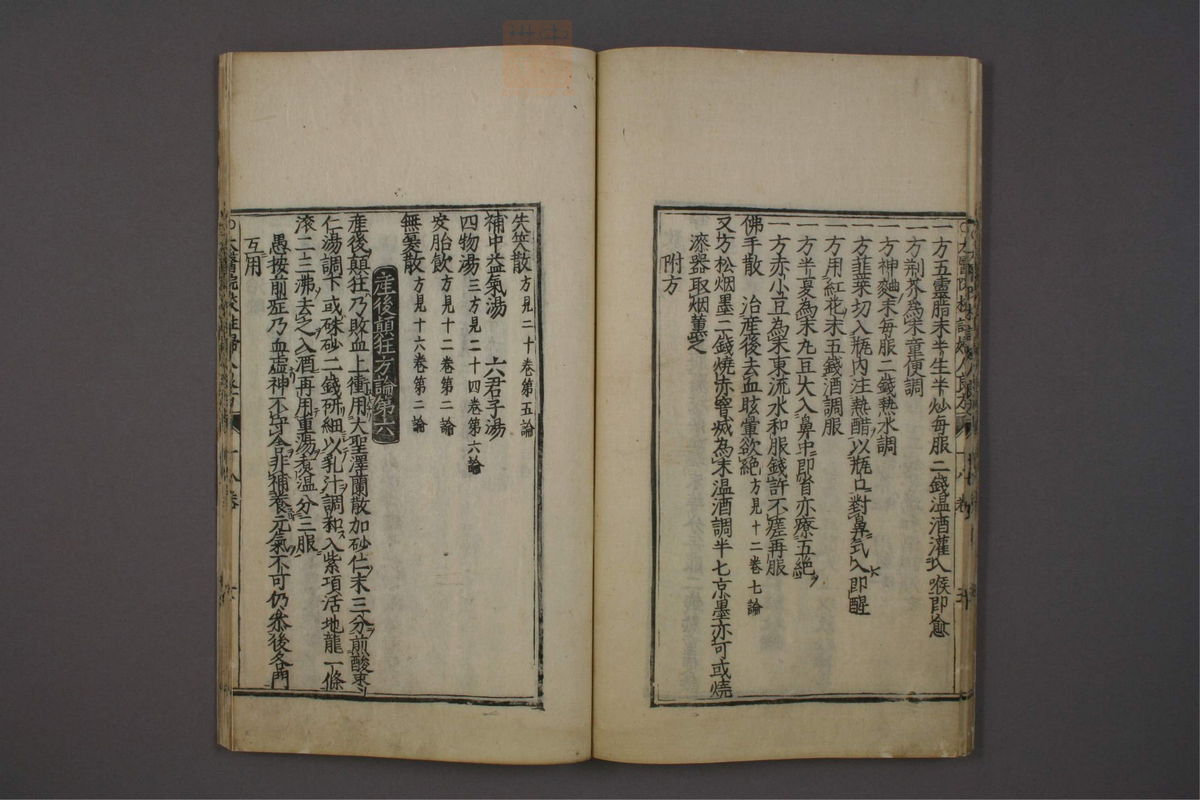 一方五靈脂末半生半炒每服二錢温酒灌入喉即愈
一方荆芥為末童便調
一方神麯末每服二錢熱水調
一方韮葉切入瓶内注熱醋以瓶口對鼻氣入即醒
一方用紅花末五錢酒調服
一方半夏為末丸豆大入鼻中即省亦療五絶
一方赤小豆為末東流水和服錢許不瘥再服
佛手散 治産後去血眩暈欲絶方見十二卷七論
又方松烟墨二錢燒赤窨滅為末温酒調半七京墨亦可或燒
漆器取烟薫之
附方
失笑散方見二十卷第五論
補中益氣湯 六君子湯
四物湯三方見二十四卷第六論
安胎飲方見十二卷第二論
無憂散方見十六卷第二論
産後顛狂方論第六
産後顛狂乃敗血上衝用大聖澤蘭散加砂仁末三分煎酸棗
仁湯調下或硃砂二錢研細以乳汁調和入紫項活地龍一條
滚二三沸去之入酒再用重湯煑温分三服
愚按前症乃血虚神不守舍非補養元氣不可仍叅後各門
互用
太醫院校註婦人良方 十八卷 六